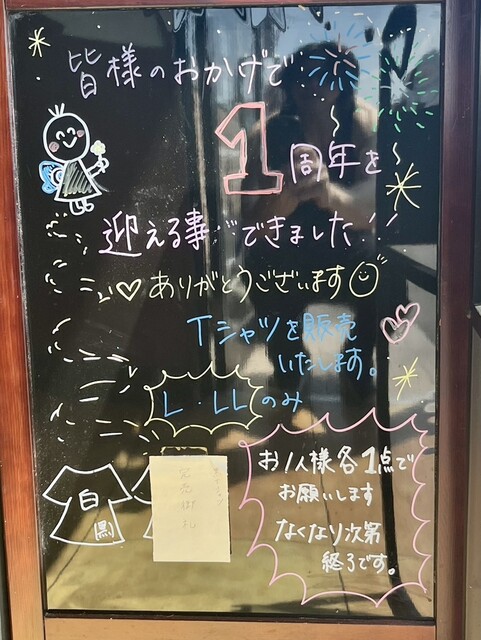 皆様のおかげで
1周年を
迎える事ができました!!
♡ありがとうございます
Tシャツを販売
いたします。
L・LLのみ
白
黒
完売御礼
お1人様各1点で
お願いします
なくなり次第
終了です。